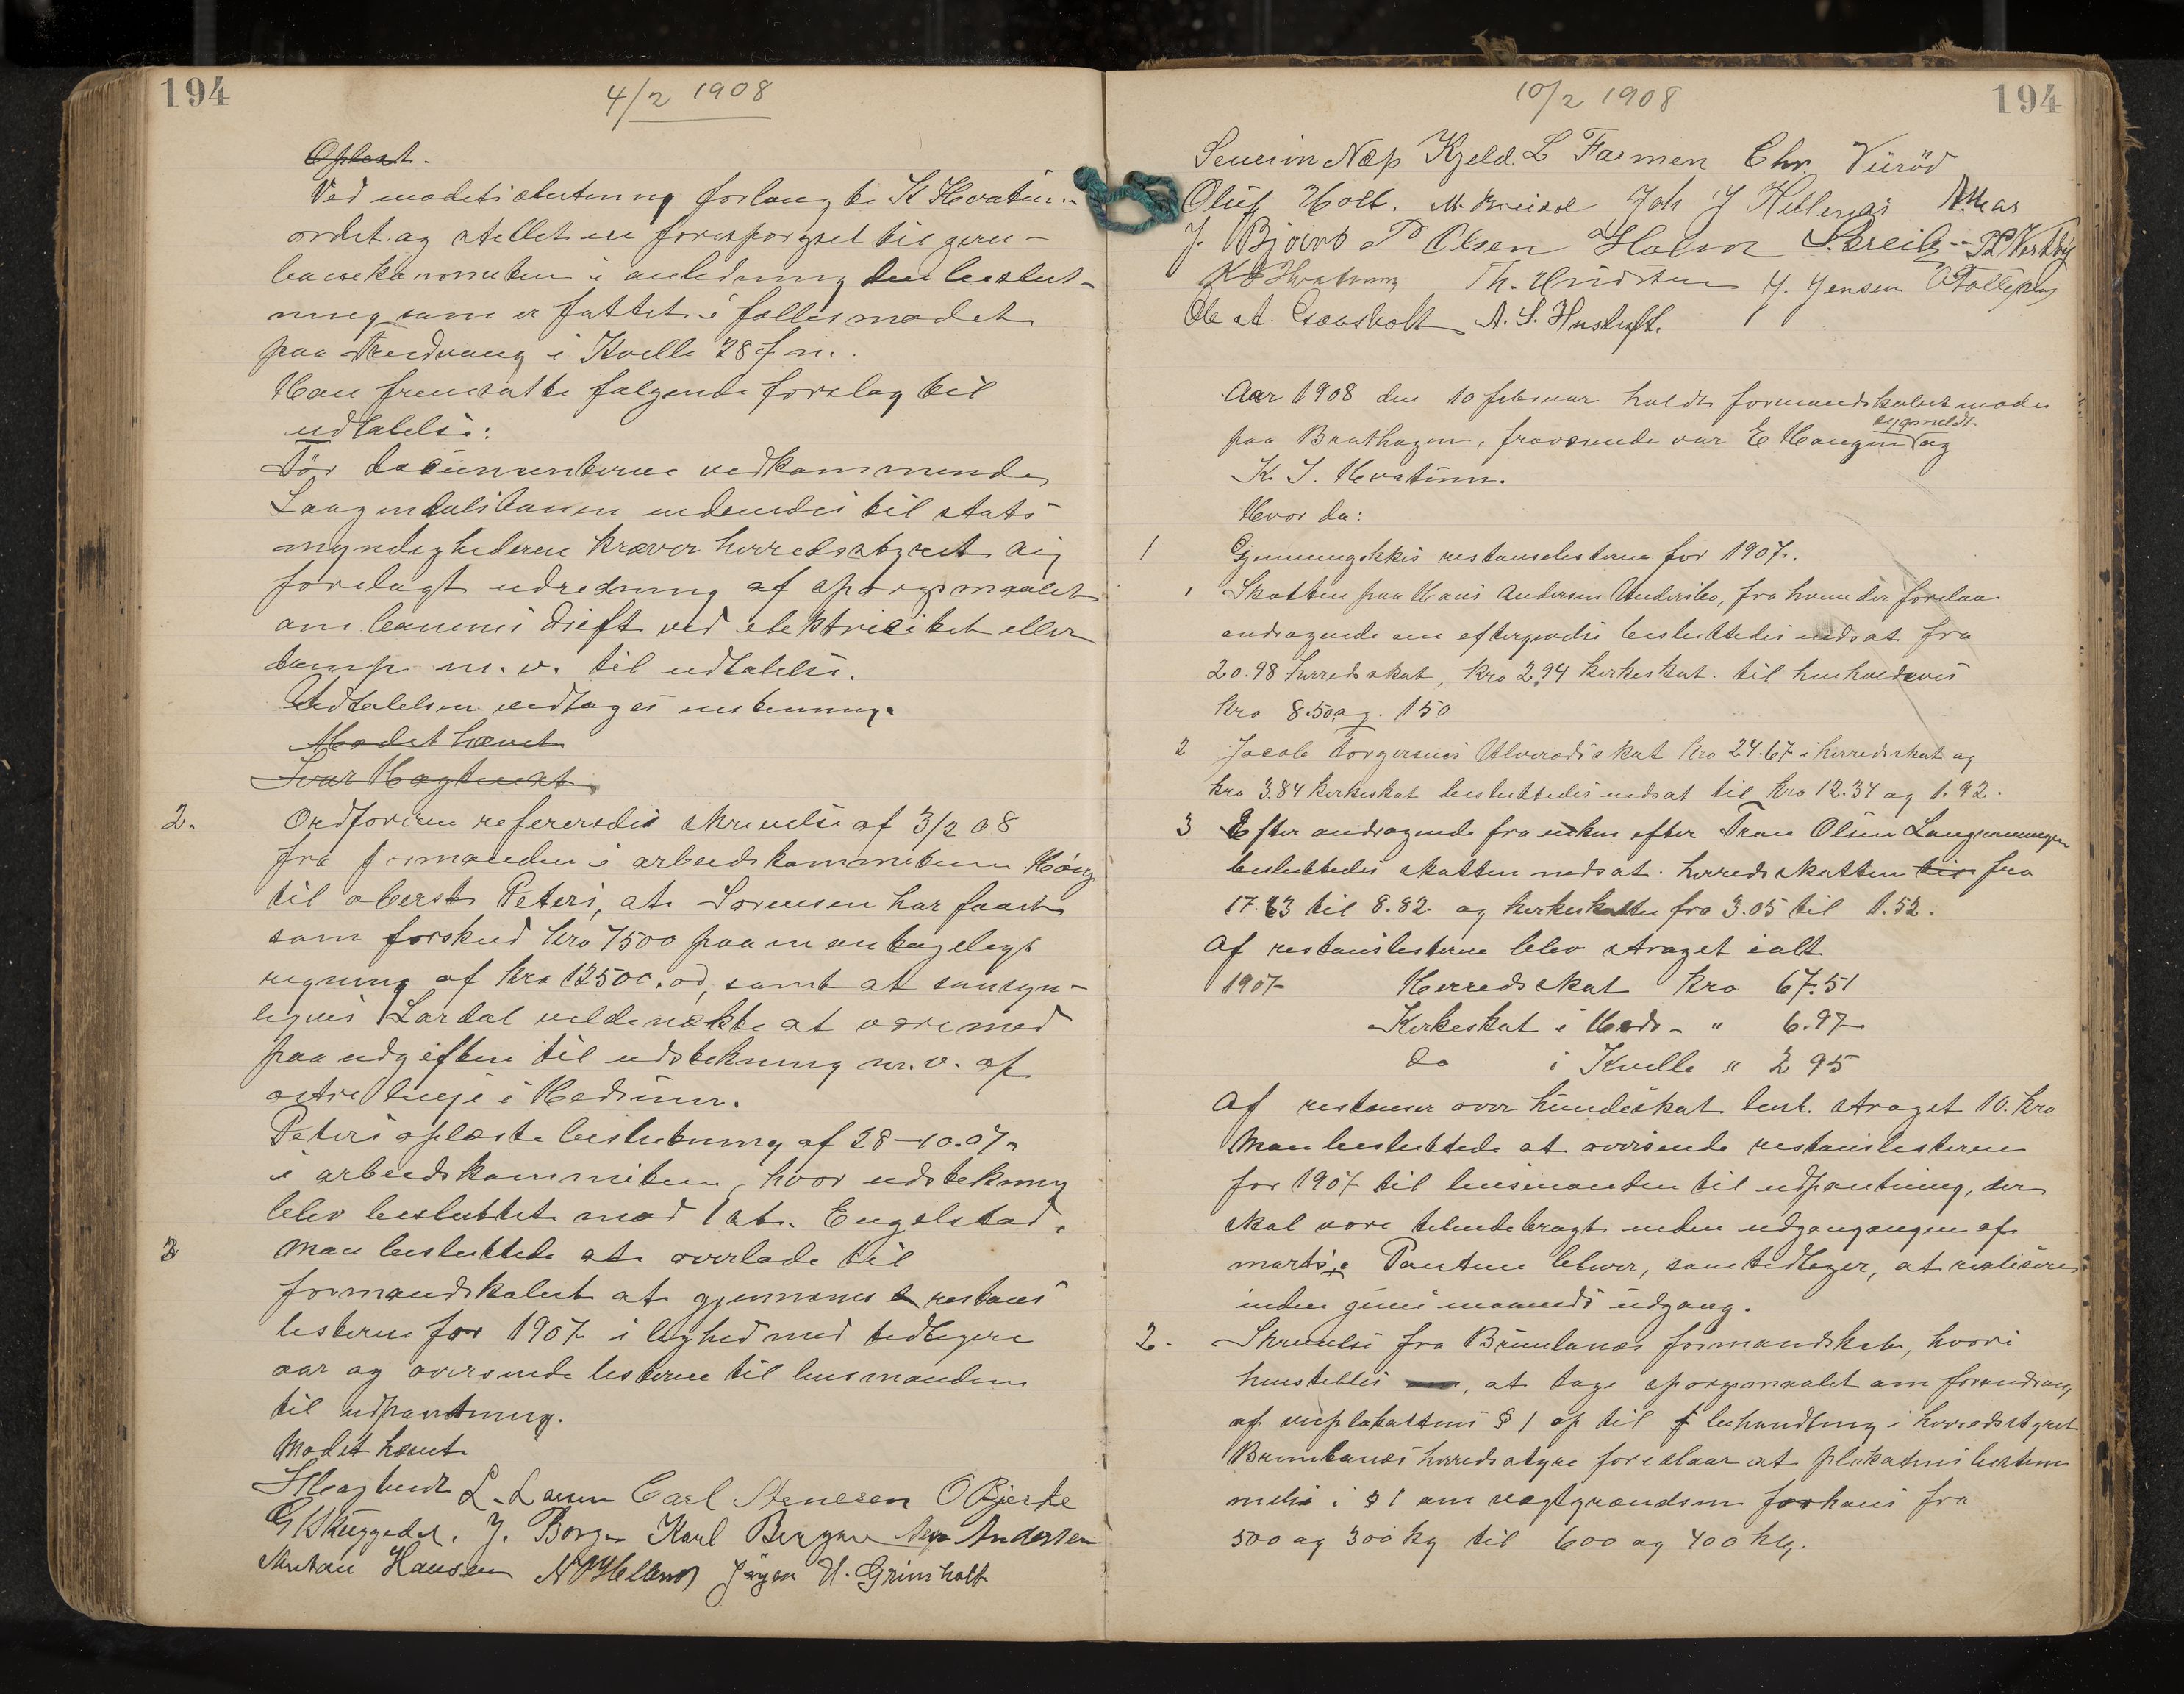 194
4/2 1908
Oplæst.
Ved mødets slutning forlangte K Hvatum
ordet og stillet en forespørgsel til jern-
banekommiteen i anledning den beslut-
ning som er fattet i fællesmødet
paa i Kvelle 28 f. m.
Han fremsatte følgende forslag til
udtalelse:
Før documenterne vedkommende
Laagendalsbanen indsendes til stats-
myndighederne kræver herredsstyret sig
forelagt udredning af spørgsmaalet
om banens drift ved elektricitet eller
damp m. v. til udtalelse.
Udtalelsen vedtages enstemmig.
Mødet hævet
Ivar Hagtvedt
2. Ordføreren refereredes skrivelse af 3/2 08
fra formanden i arbeidskommiteen Høeg
til oberst Peters, at Sørensen har faaet
som forskud kro 7500 paa
regning af kro 12500.00, samt at sansyn-
ligvis Lardal vilde nækte at være med
paa udgiften til udstekning m. v. af
østre linje i Hedrum.
Peters oplæste beslutning af 28-10.07
i arbeidskommiteen, hvor udstekning
blev besluttet mod 1 st. Engelstad.
3 Man besluttede at overlade til
formandskabet at gjennemse restans
listerne for 1907 i lighed med tidligere
aar og oversende listerne til lensmanden
til udpantning.
Mødet hævet
IHagtvedt L. Larsen Carl Arnesen O Bjerke
G Skuggedal. J. Borge Karl Bergene Andersen
Hansen Jørgen H. Grimholt
10/2 1908
194
Severin Næs Kjeld L Farmen Chr. Virød
Oluf Holt. Joh J
J. Bjørnø P Olsen Holm
K S Hvatum Th. J. Jensen
Ole A. A. S.
Aar 1908 den 10 februar holdt formandskabet møde
sygmeldt
paa Brathagen, fraværende var E Haugen og
K. S. Hvatum.
Hvor da:
1 Gjennemgikkes restanselisterne for 1907.
1 Skatten paa Hans Andersen Undersbo, fra hvem der forelaa
andragende om eftergivelse besluttedes nedsat fra
20.98 herredsskat, kro 2,94 kirkeskat. til henholdsvis
kro 8.50 og. 150
2 Jacob Torgersens Ulverøds skat kro 24.67 i herredsskat og
kro 3.84 kirkeskat besluttedes nedsat til kro 12.34 og 1.92.
3 Efter andragende fra enken efter Tran Olsen
besluttedes skatten nedsat. herredsskatten til fra
17.63 til 8.82 og kirkeskatten fra 3.05 til 1.52.
Af restanslisterne blev strøget ialt
1907 Herredsskat kro 67.51
Kirkeskat i Hedr- " 6.97
do i Kvelle " 2 95
Af restanser over hundeskat blev strøget 10. kro
Man besluttede at oversende restanslisterne
for 1907 til lensmanden til udpantning, der
skal være tilendebragt inden udgangangen af
marts. Pantene bliver, som tidliger, at realiseres
inden juni maaneds udgang.
2. Skrivelse fra Brunlanæs formandskab, hvori
henstilles, at tage spørgsmaalet om forandring
af veiplakattens § 1 op til behandling i herredsstyret
Brunlanæs herredsstyre foreslaar at plakatens bestem
melse i § 1 om vægtgrændsen forhøies fra
500 og 300 kg til 600 og 400 klg.